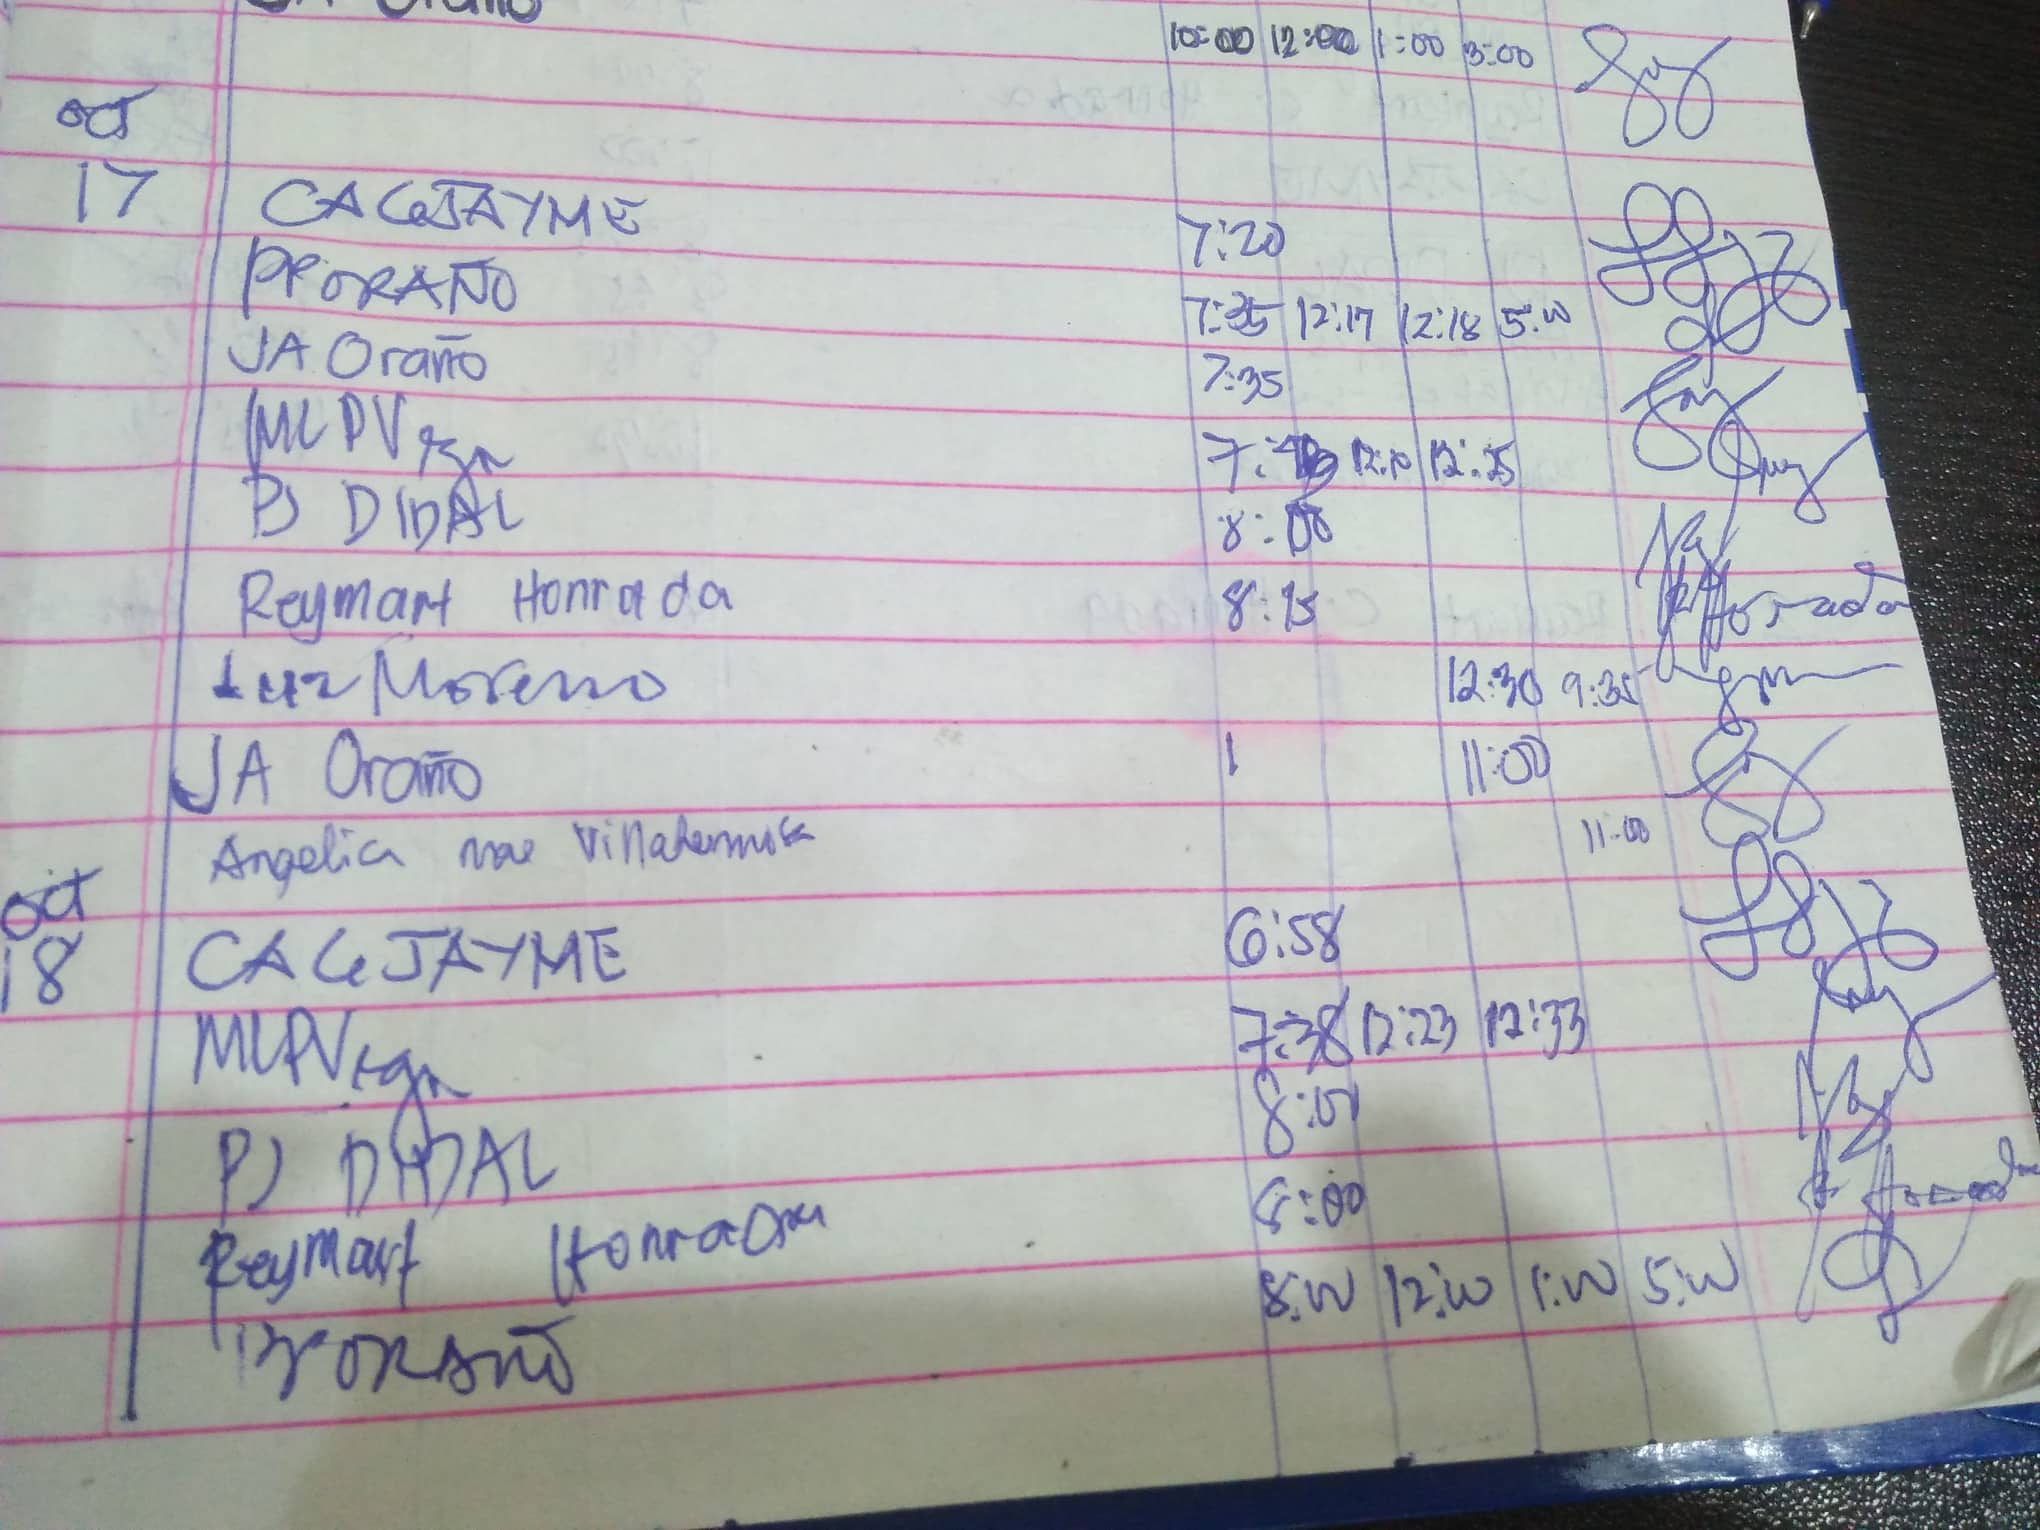 JA Oraño 10:00 12:00 1:00 3:00
oct
17 CAGJAYME 7:20
PPORAÑO 7:35 12:17 12:18 5:00
JA Oraño 7:35
MLPV 7: 12:10 12:25
PJ DIDAL 8:00
Reymart Honrada 8:15 Honrada
Luz Moreno 12:30 9:35
JA Oraño 1 11:00
Angelica mae Villahermosa 11:00
oct
18 CAGJAYME 6:58
MLPV 7:38 12:23 12:33
PJ DIDAL 8:01
Reymart Honrada 8:00 Honrada
ORAÑO 8:00 12:00 1:00 5:00